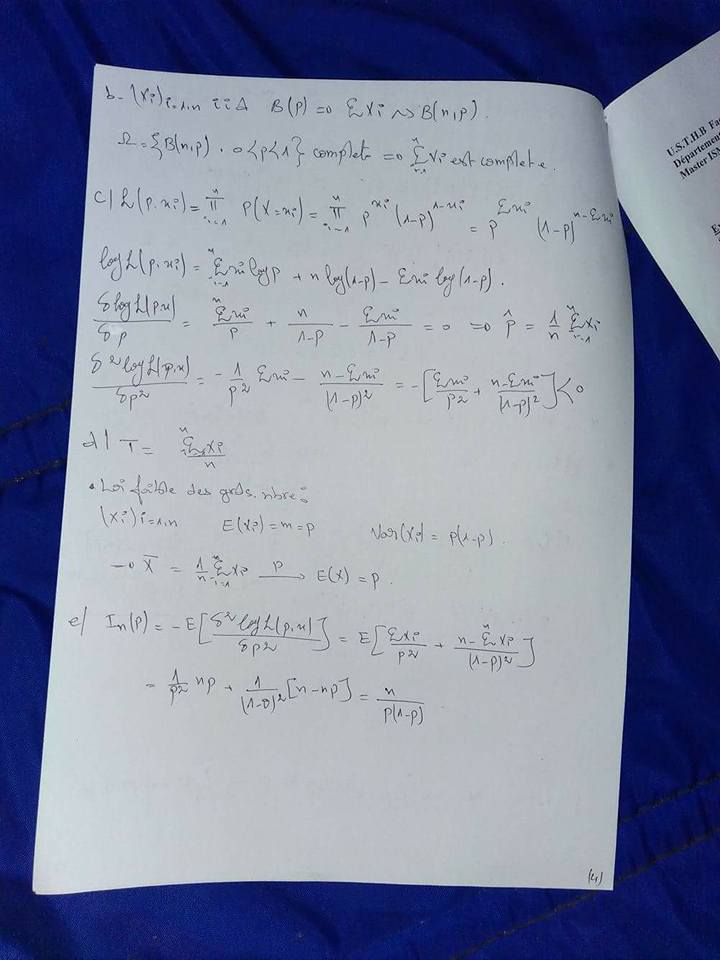 b- (Xi)i=1,n iiΔ B(p) =0 ΣXi ~> B(n,p).
Ω = {B(n,p) · 0<p<1} complet =0 Σ Xi est complete.
c/ L(p,xi) = π P(X=xi) = π p^xi (1-p)^1-xi = p^Σxi (1-p)^n-Σxi
log L(p,xi) = Σxi log p + n log(1-p) - Σxi log(1-p).
δ log L(p,x) / δp = Σxi / p + n / 1-p - Σxi / 1-p = 0 =0 p̂ = 1/n Σ Xi
δ² log L(p,x) / δp² = - 1/p² Σxi - n-Σxi / (1-p)² = - [Σxi / p² + n-Σxi / (1-p)²] < 0
d/ T = ΣXi / n
• Loi faible des grds. nbre:
(Xi)i=1,n E(Xi) = m = p Var(Xi) = p(1-p).
-o X̄ = 1/n Σ Xi P→ E(X) = p.
e/ In(p) = -E[δ² log L(p,x) / δp²] = E[ΣXi / p² + n-ΣXi / (1-p)²]
= 1/p² np + 1/(1-p)² [n-np] = n / p(1-p)
(4)
U.S.T.H.B Fa
Département
Master ISM